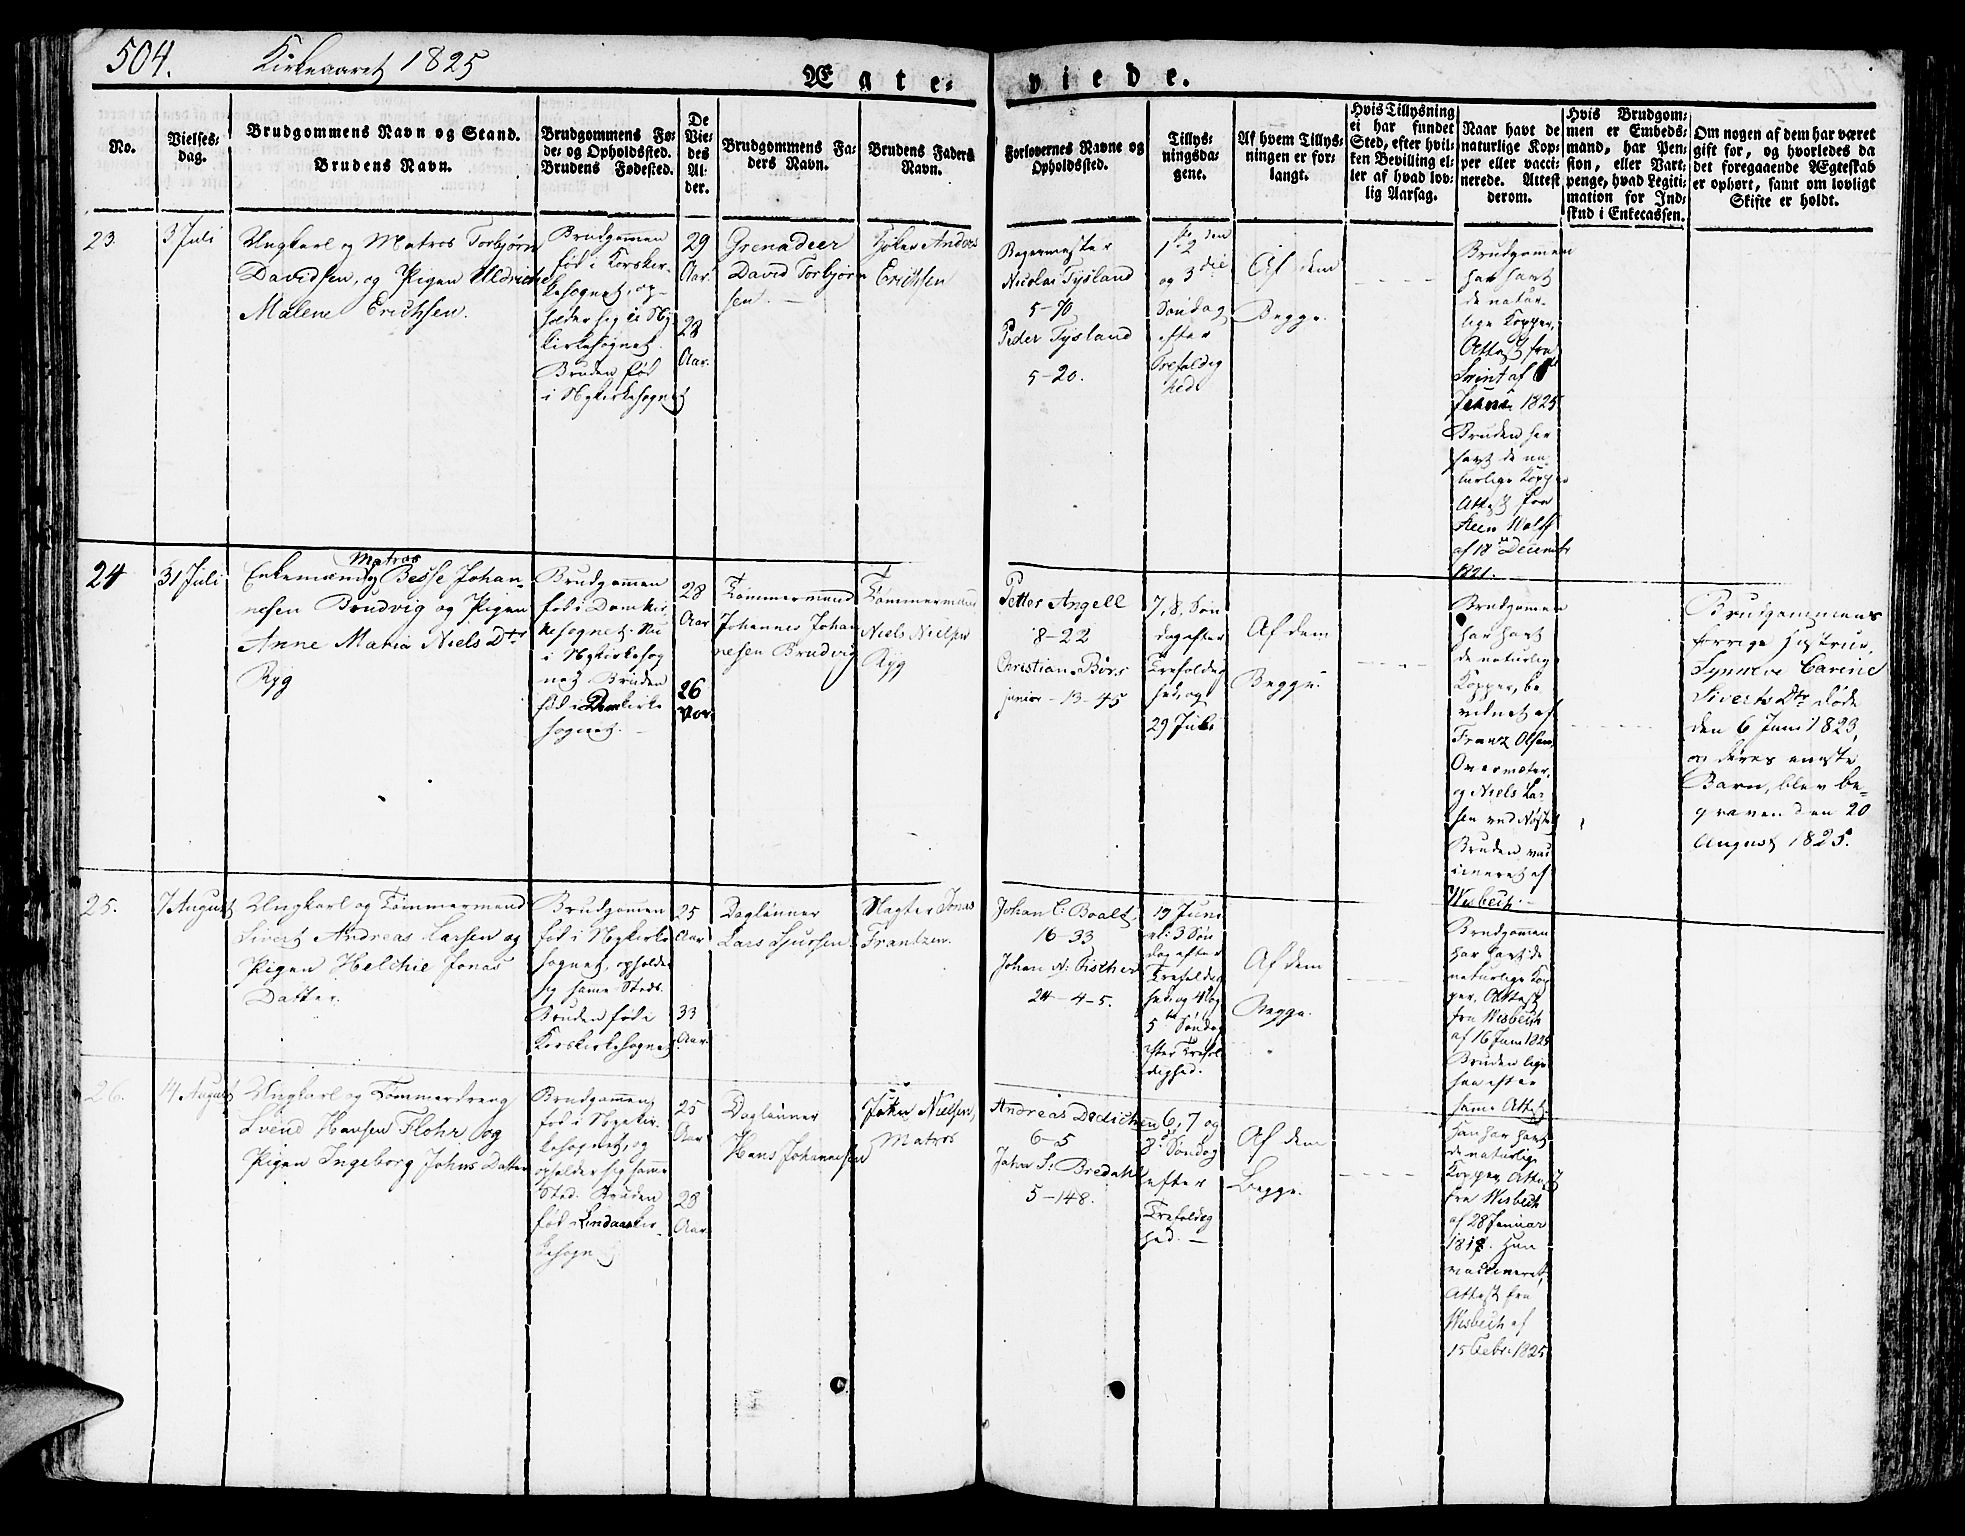 504.
Kirkeaaret 1825
Ægte-
viede.
No.
Vielses-
dag.
Brudgommens Navn og Stand.
Brudens Navn.
Brudgommens Fø-
de- og Opholdssted.
Brudens Fødested.
De
Vie-
des
Al-
der.
Brudgommens Fa-
ders Navn.
Brudens Faders
Navn.
Forlovernes Navne og
Opholdssted.
Tillys-
ningsda-
gene.
Af hvem Tillys-
ningen er for-
langt.
Hvis Tillysning
ei har fundet
Sted, efter hvil-
ken Bevilling el-
ler af hvad lov-
lig Aarsag.
Naar havt de
naturlige Kop-
per eller vacci-
nerede. Attest
derom.
Hvis Brudgom-
men er Embeds-
mand, har Pen-
sion, eller Vart-
penge, hvad Legiti-
mation for Ind-
skud i Enkecassen.
Om nogen af dem har været
gift før, og hvorledes da
det foregaaende Ægteskab
er ophørt, samt om lovligt
Skifte er holdt.
23.
3 Juli
Ungkarl og Matros Torbjørn
Davidsen, og Pigen Uldriche
Malene Erichsen.
Brudgommen
fød i Korskir-
kesognet, op-
holder sig i Ny-
kirkesognet.
Bruden fød
i Nykirkesognet
29
Aar.
28
Aar.
Grenadeer
David Torbjørn
sen. —
Anders
Erichsen
Nicolai Tysland
5-70
Peder Tysland
5-20.
og 3die
Søndag
efter
Trefoldig
hed
Af dem
Begge.
Brudgommen
har havt
de natur-
lige Kopper,
Attest fra
1825
Bruden har
havt de na-
turlige Kopper
Attest fra
af 18de Decembr
1821.
24
31 Juli
Matros
Enkemand og Besse Johan-
nesen Brudvig og Pigen
Anne Maria Niels Dtr
Ryg
Brudgommen
fød i Domkir-
kesognet. Nu
i Nykirkesog
net. Bruden
fød i Domkirke
sognet. —
28
Aar
26
Aar
Tømmermand
Johannes Johan
nesen Brudvig
Tømmermand
Niels Nielsen
Ryg
Petter Angell
8-22
Christian Børs
junior - 13-45
7, 8, Søn
dag efter
Trefoldig
hed, og
29 Juli
Af dem
Begge.
Brudgommen
har havt
de naturlige
Kopper, be
vidnet af
Franz Olsen,
og Niels La-
sen ved Nøstet
Bruden vac
cineret af
Wisbech. —
Brudgommens
forrige Hustrue,
Synneve Carine
Siverts Dtr døde
den 6 Juni 1823,
og deres eneste
Barn, blev be-
graven den 20
August 1825.
25.
7 August
Ungkarl og Tømmermand
Sivert Andreas Larsen og
Pigen Helchie Jonas
Datter.
Brudgommen
fød i Nykirke
sognet, opholder
sig samme Steds.
Bruden fød i
Korskirkesognet
25
Aar
33
Aar.
Daglønner
Lars Sjursen
Slagter Jonas
Frantzen.
Johan C. Boalt
16-33
Johan N. Fischer
24-4-5.
19 Juni
el: 3 Søn
dag efter
Trefoldig
hed, og 4 og
5te Søndag
efter Trefol
dighed.
Af dem
Begge.
Brudgommen
har havt de
naturlige Kop
per, Attest
fra Wisbech
af 16 Juni 1825
Bruden lige
saa efter
samme Attest
26.
14 August
Ungkarl og Tømmerdreng
Svend Hansen Flohr og
Pigen Ingeborg Johns Datter
Brudgommen
fød i Nykir-
kesognet, og
opholder sig samme
Sted. Bruden
fød i Lindaaskir-
kesogn
25
Aar
28
Aar
Daglønner
Hans Johannesen
John Nielsen,
Matros
Andreas Dedichen
6-5
John S: Bredahl
5-148.
6, 7 og
8de Søndag
efter
Trefoldig
hed. —
Af dem
Begge.
Han har havt
de naturlige
Kopper, Attest
fra Wisbech
af 28 Januar
Hun
vaccineret,
Attest fra
Wisbech af
15 Febr. 1825